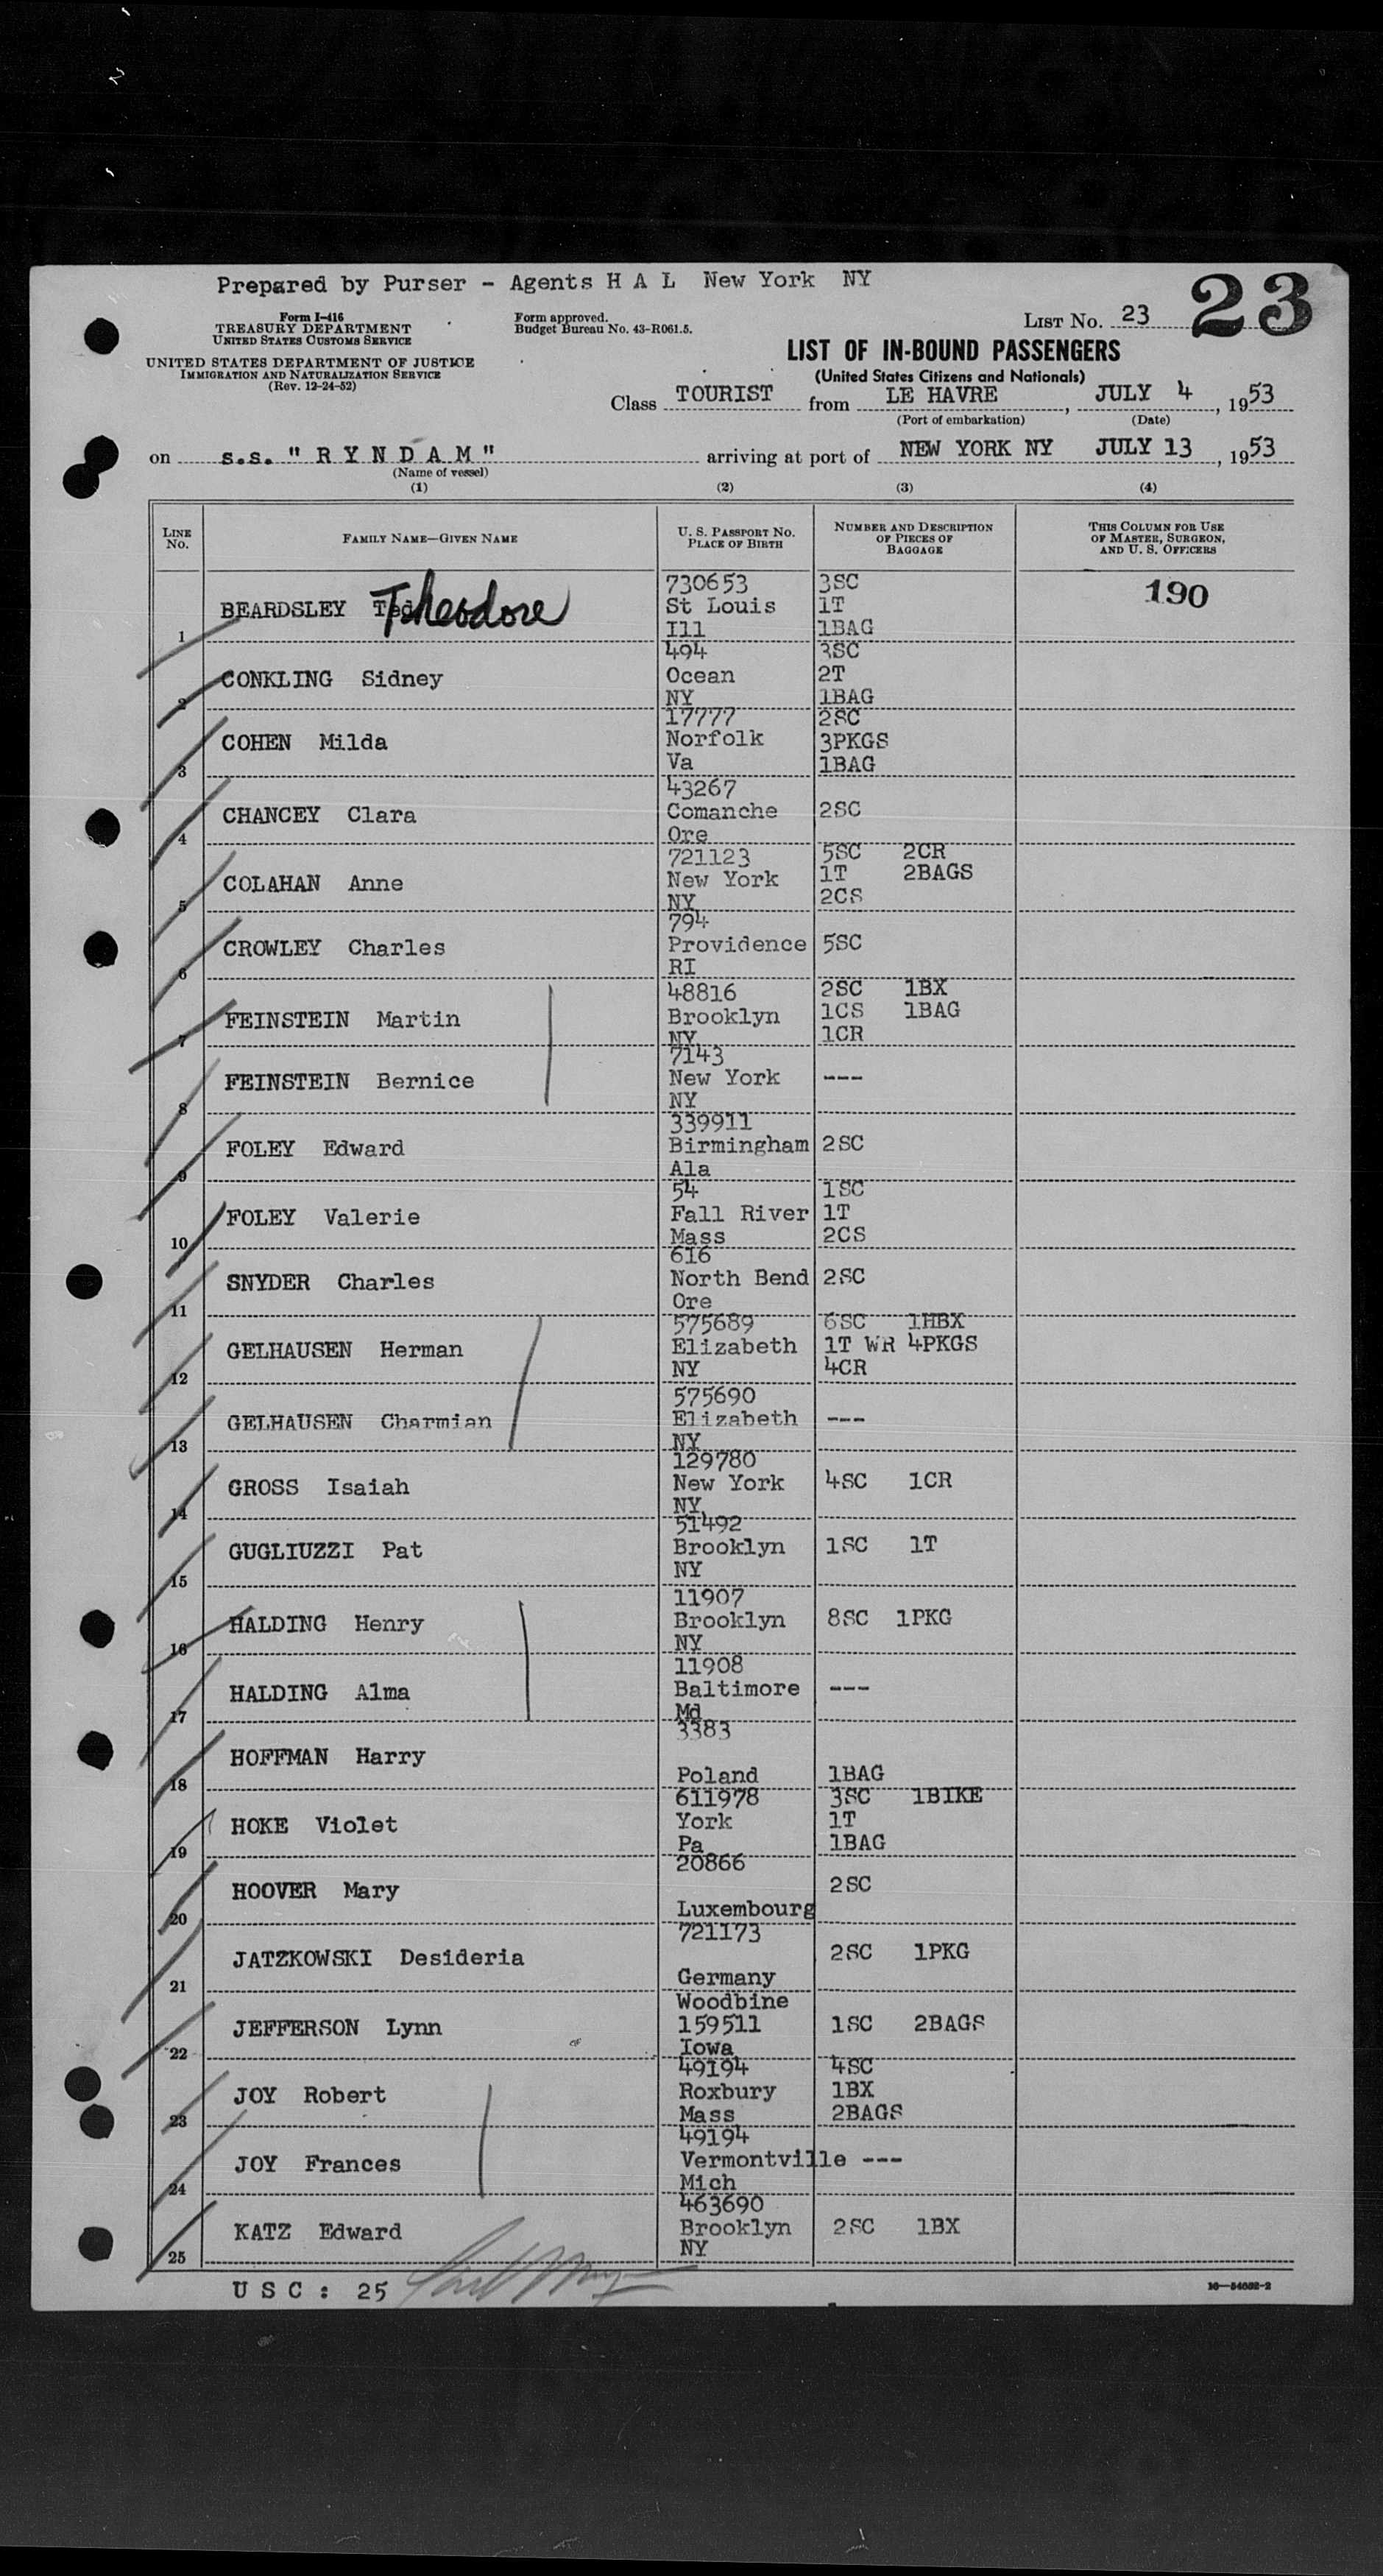 Prepared by Purser - Agents H A L New York NY
23
Form I-416
TREASURY DEPARTMENT
UNITED STATES CUSTOMS SERVICE
UNITED STATES DEPARTMENT OF JUSTICE
IMMIGRATION AND NATURALIZATION SERVICE
(Rev. 12-24-52)
Form approved.
Budget Bureau No. 43-R061.5.
LIST No. 23
LIST OF IN-BOUND PASSENGERS
(United States Citizens and Nationals)
Class TOURIST from LE HAVRE, JULY 4, 1953
(Port of embarkation) (Date)
on s.s. " R Y N D A M " arriving at port of NEW YORK NY JULY 13, 1953
(Name of vessel)
(1) (2) (3) (4)
LINE No.
FAMILY NAME—GIVEN NAME
U. S. PASSPORT NO.
PLACE OF BIRTH
NUMBER AND DESCRIPTION
OF PIECES OF
BAGGAGE
THIS COLUMN FOR USE
OF MASTER, SURGEON,
AND U. S. OFFICERS
730653 3SC 190
BEARDSLEY Ted Theodore St Louis 1T
1 Ill 1BAG
494 3SC
CONKLING Sidney Ocean 2T
2 NY 1BAG
17777 2SC
COHEN Milda Norfolk 3PKGS
3 Va 1BAG
43267
CHANCEY Clara Comanche 2SC
4 Ore
721123 5SC 2CR
COLAHAN Anne New York 1T 2BAGS
5 NY 2CS
794
CROWLEY Charles Providence 5SC
6 RI
48816 2SC 1BX
FEINSTEIN Martin Brooklyn 1CS 1BAG
7 NY 1CR
7143
FEINSTEIN Bernice New York ---
8 NY
339911
FOLEY Edward Birmingham 2SC
9 Ala
54 1SC
FOLEY Valerie Fall River 1T
10 Mass 2CS
616
SNYDER Charles North Bend 2SC
11 Ore
575689 6SC 1HBX
GELHAUSEN Herman Elizabeth 1T WR 4PKGS
12 NY 4CR
575690
GELHAUSEN Charmian Elizabeth ---
13 NY
129780
GROSS Isaiah New York 4SC 1CR
14 NY
51492
GUGLIUZZI Pat Brooklyn 1SC 1T
15 NY
11907
HALDING Henry Brooklyn 8SC 1PKG
16 NY
11908
HALDING Alma Baltimore ---
17 Md
3383
HOFFMAN Harry
18 Poland 1BAG
611978 3SC 1BIKE
HOKE Violet York 1T
19 Pa 1BAG
20866
HOOVER Mary 2SC
20 Luxembourg
721173
JATZKOWSKI Desideria 2SC 1PKG
21 Germany
Woodbine
JEFFERSON Lynn 159511 1SC 2BAGS
22 Iowa
49194 4SC
JOY Robert Roxbury 1BX
23 Mass 2BAGS
49194
JOY Frances Vermontville ---
24 Mich
463690
KATZ Edward Brooklyn 2SC 1BX
25 NY
U S C : 25
16—54682-2